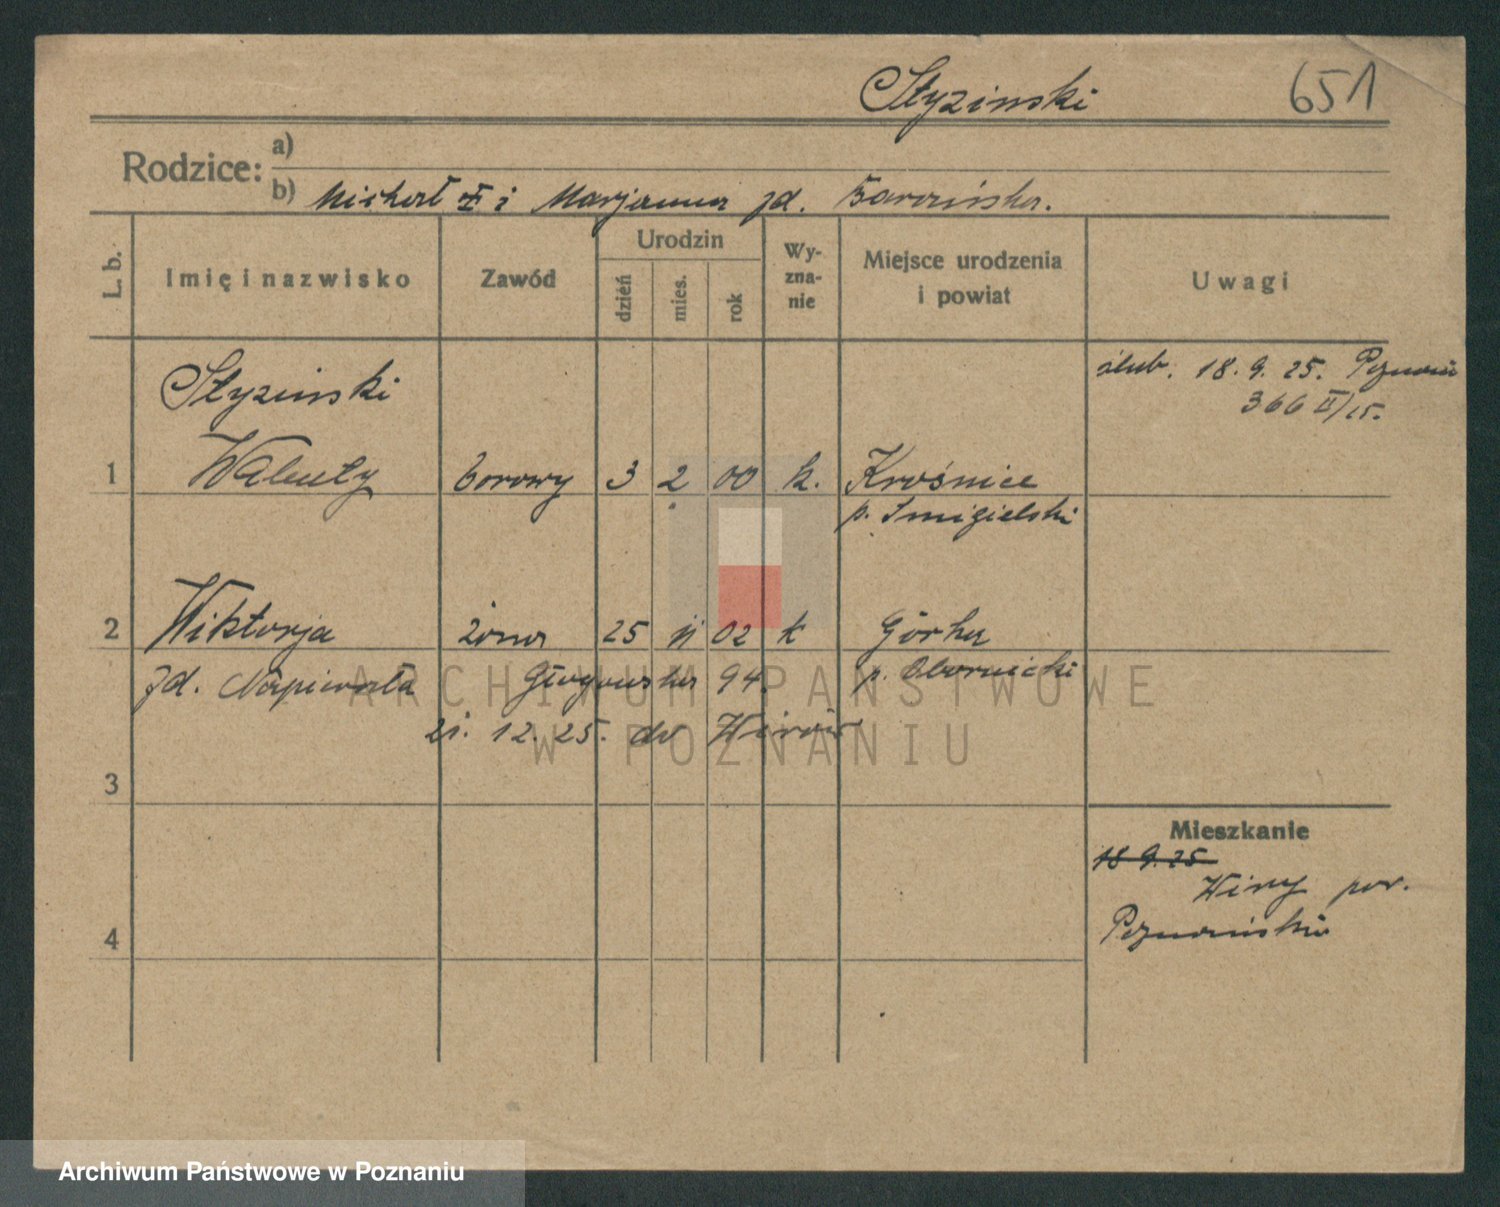 Styzinski 651
Rodzice: a)
b) Michał i Marjanna zd. Barańska.
L. b.
Imię i nazwisko
Zawód
Urodzin
dzień
mies.
rok
Wy-
zna-
nie
Miejsce urodzenia
i powiat
Uwagi
ślub. 18. 9. 25. Poznań
366 II/25.
Styzinski
1 Walenty borowy 3 2 00 k. Krośnice
p. Śmigielski
2 Wiktorja żona 25 11 02 k Górka
zd. Napierała 94. p. Obornicki
21. 12. 25. do
3
4
Mieszkanie
18 9. 25
Wiry pow.
Poznański
ARCHIWUM PAŃSTWOWE
W POZNANIU
Archiwum Państwowe w Poznaniu